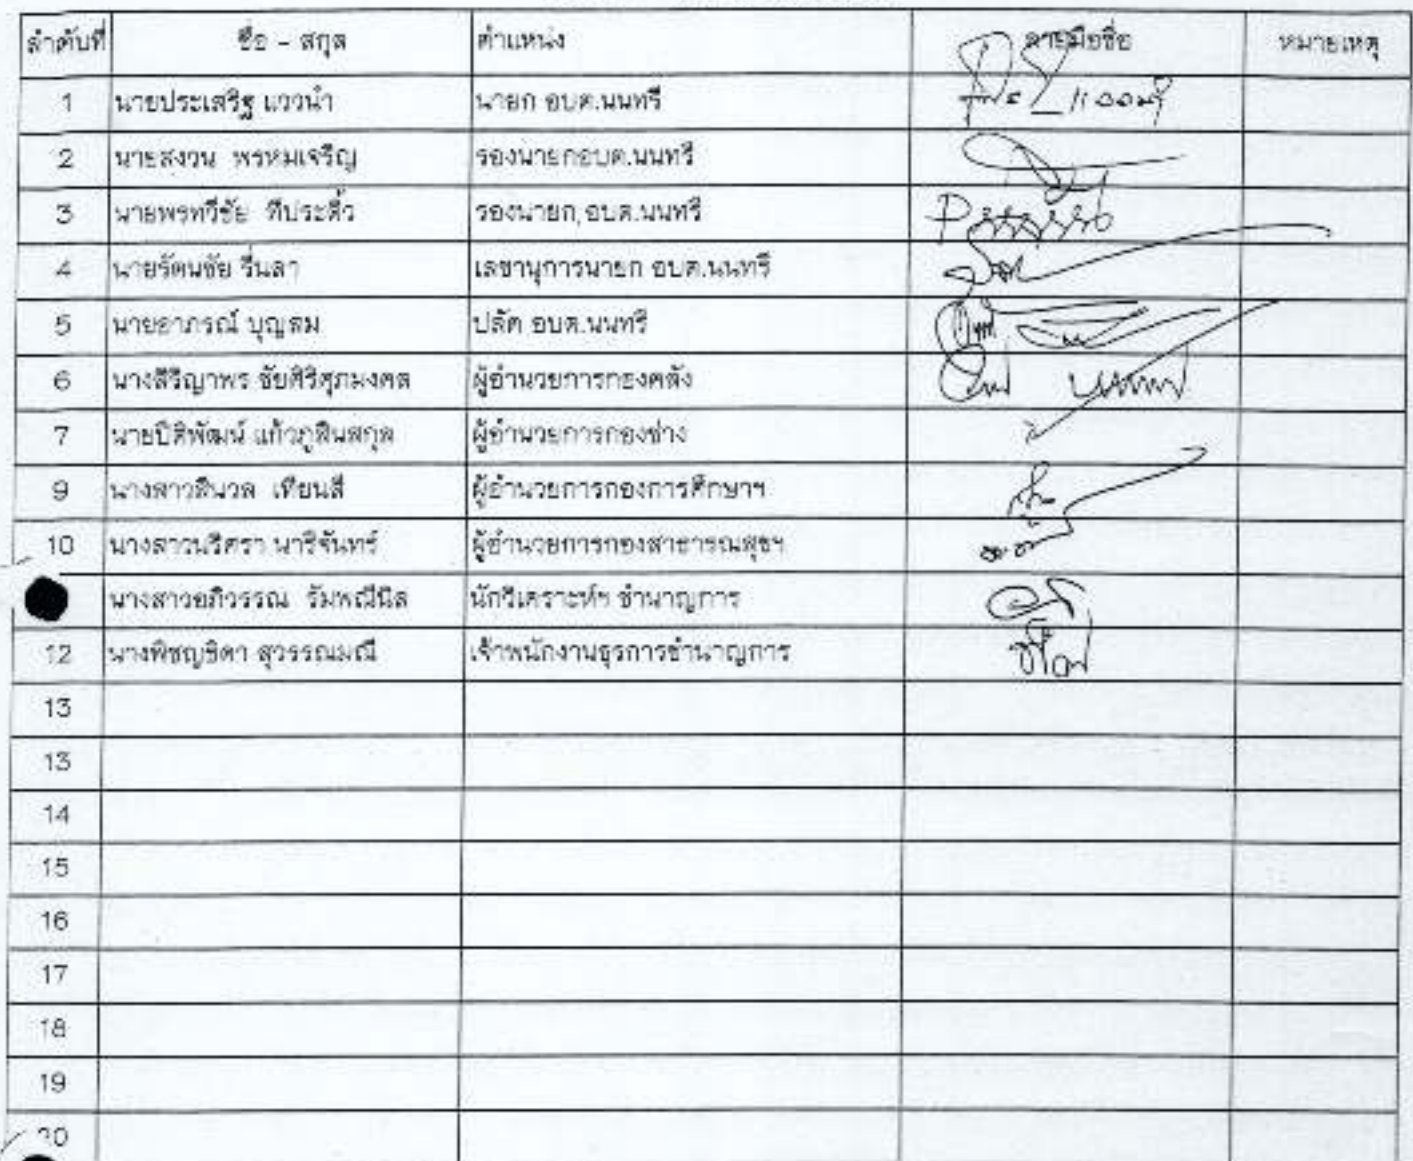 ลำดับที่ ชื่อ - สกุล ตำแหน่ง ลายมือชื่อ หมายเหตุ
1 นายประเสริฐ แววนำ นายก อบต.นนทรี
2 นายสงวน พรหมเจริญ รองนายกอบต.นนทรี
3 นายพรทวีชัย ทีประติ้ว รองนายก,อบต.นนทรี
4 นายรัตนชัย รื่นลา เลขานุการนายก อบต.นนทรี
5 นายอาภรณ์ บุญสม ปลัด อบต.นนทรี
6 นางสิริญาพร ชัยศิริศุภมงคล ผู้อำนวยการกองคลัง
7 นายปิติพัฒน์ แก้วภูสินสกุล ผู้อำนวยการกองช่าง
9 นางสาวสีนวล เทียนสี ผู้อำนวยการกองการศึกษาฯ
10 นางสาวนริศรา นาริจันทร์ ผู้อำนวยการกองสาธารณสุขฯ
นางสาวอภิวรรณ รัมพณีนิล นักวิเคราะห์ฯ ชำนาญการ
12 นางพิชญธิดา สุวรรณมณี เจ้าพนักงานธุรการชำนาญการ
13
13
14
15
16
17
18
19
20